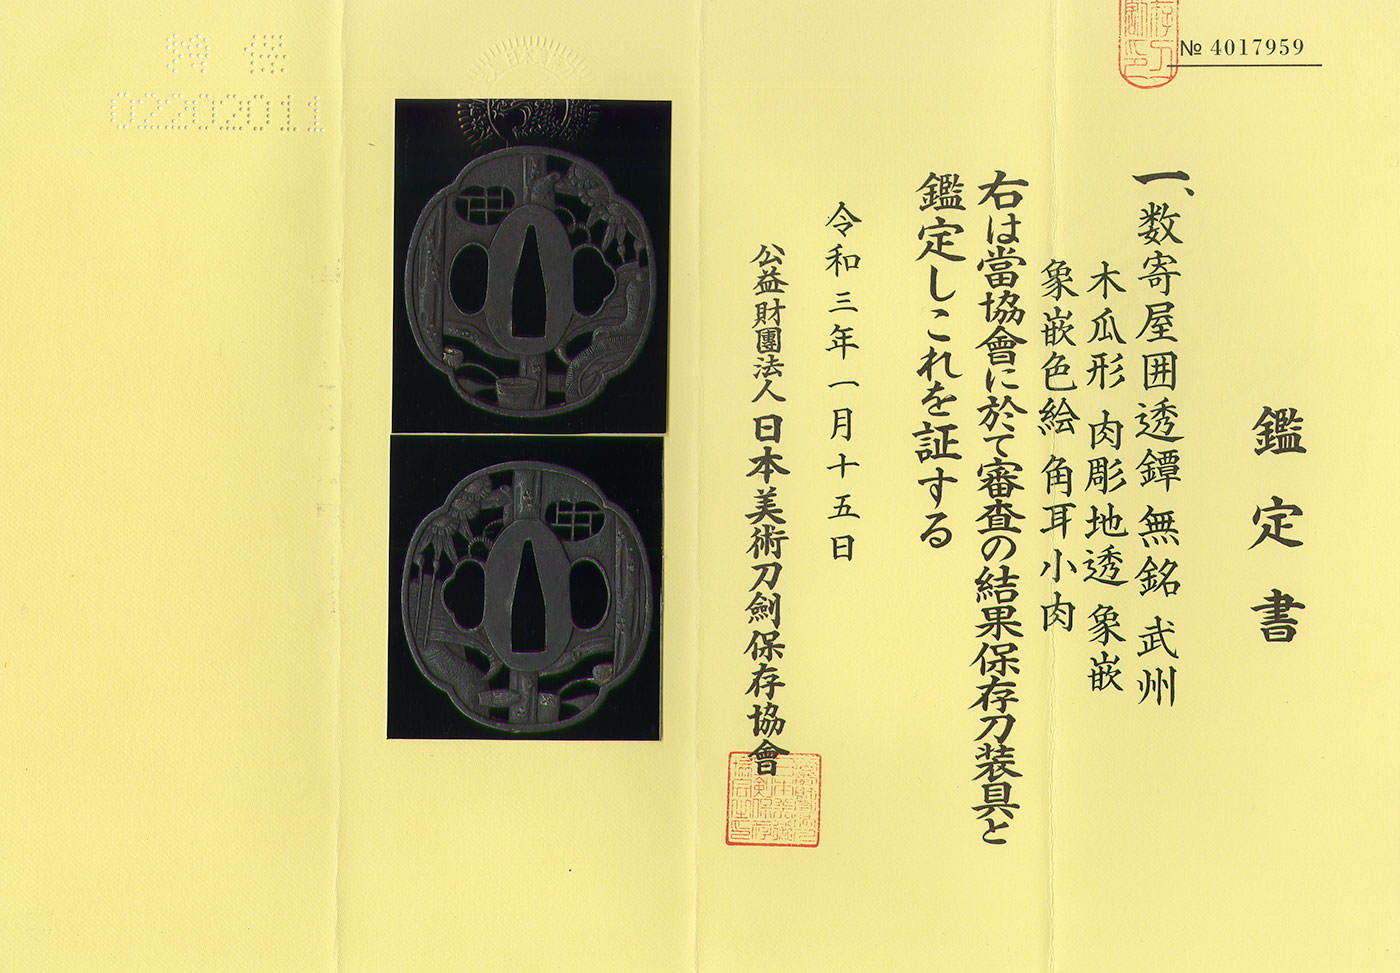 № 4017959
鑑定書
一、数寄屋囲透鐔 無銘 武州
木瓜形 肉彫地透 象嵌
象嵌色絵 角耳小肉
右は當協會に於て審査の結果保存刀装具と
鑑定しこれを証する
令和三年一月十五日
公益財團法人 日本美術刀劍保存協會
02202011